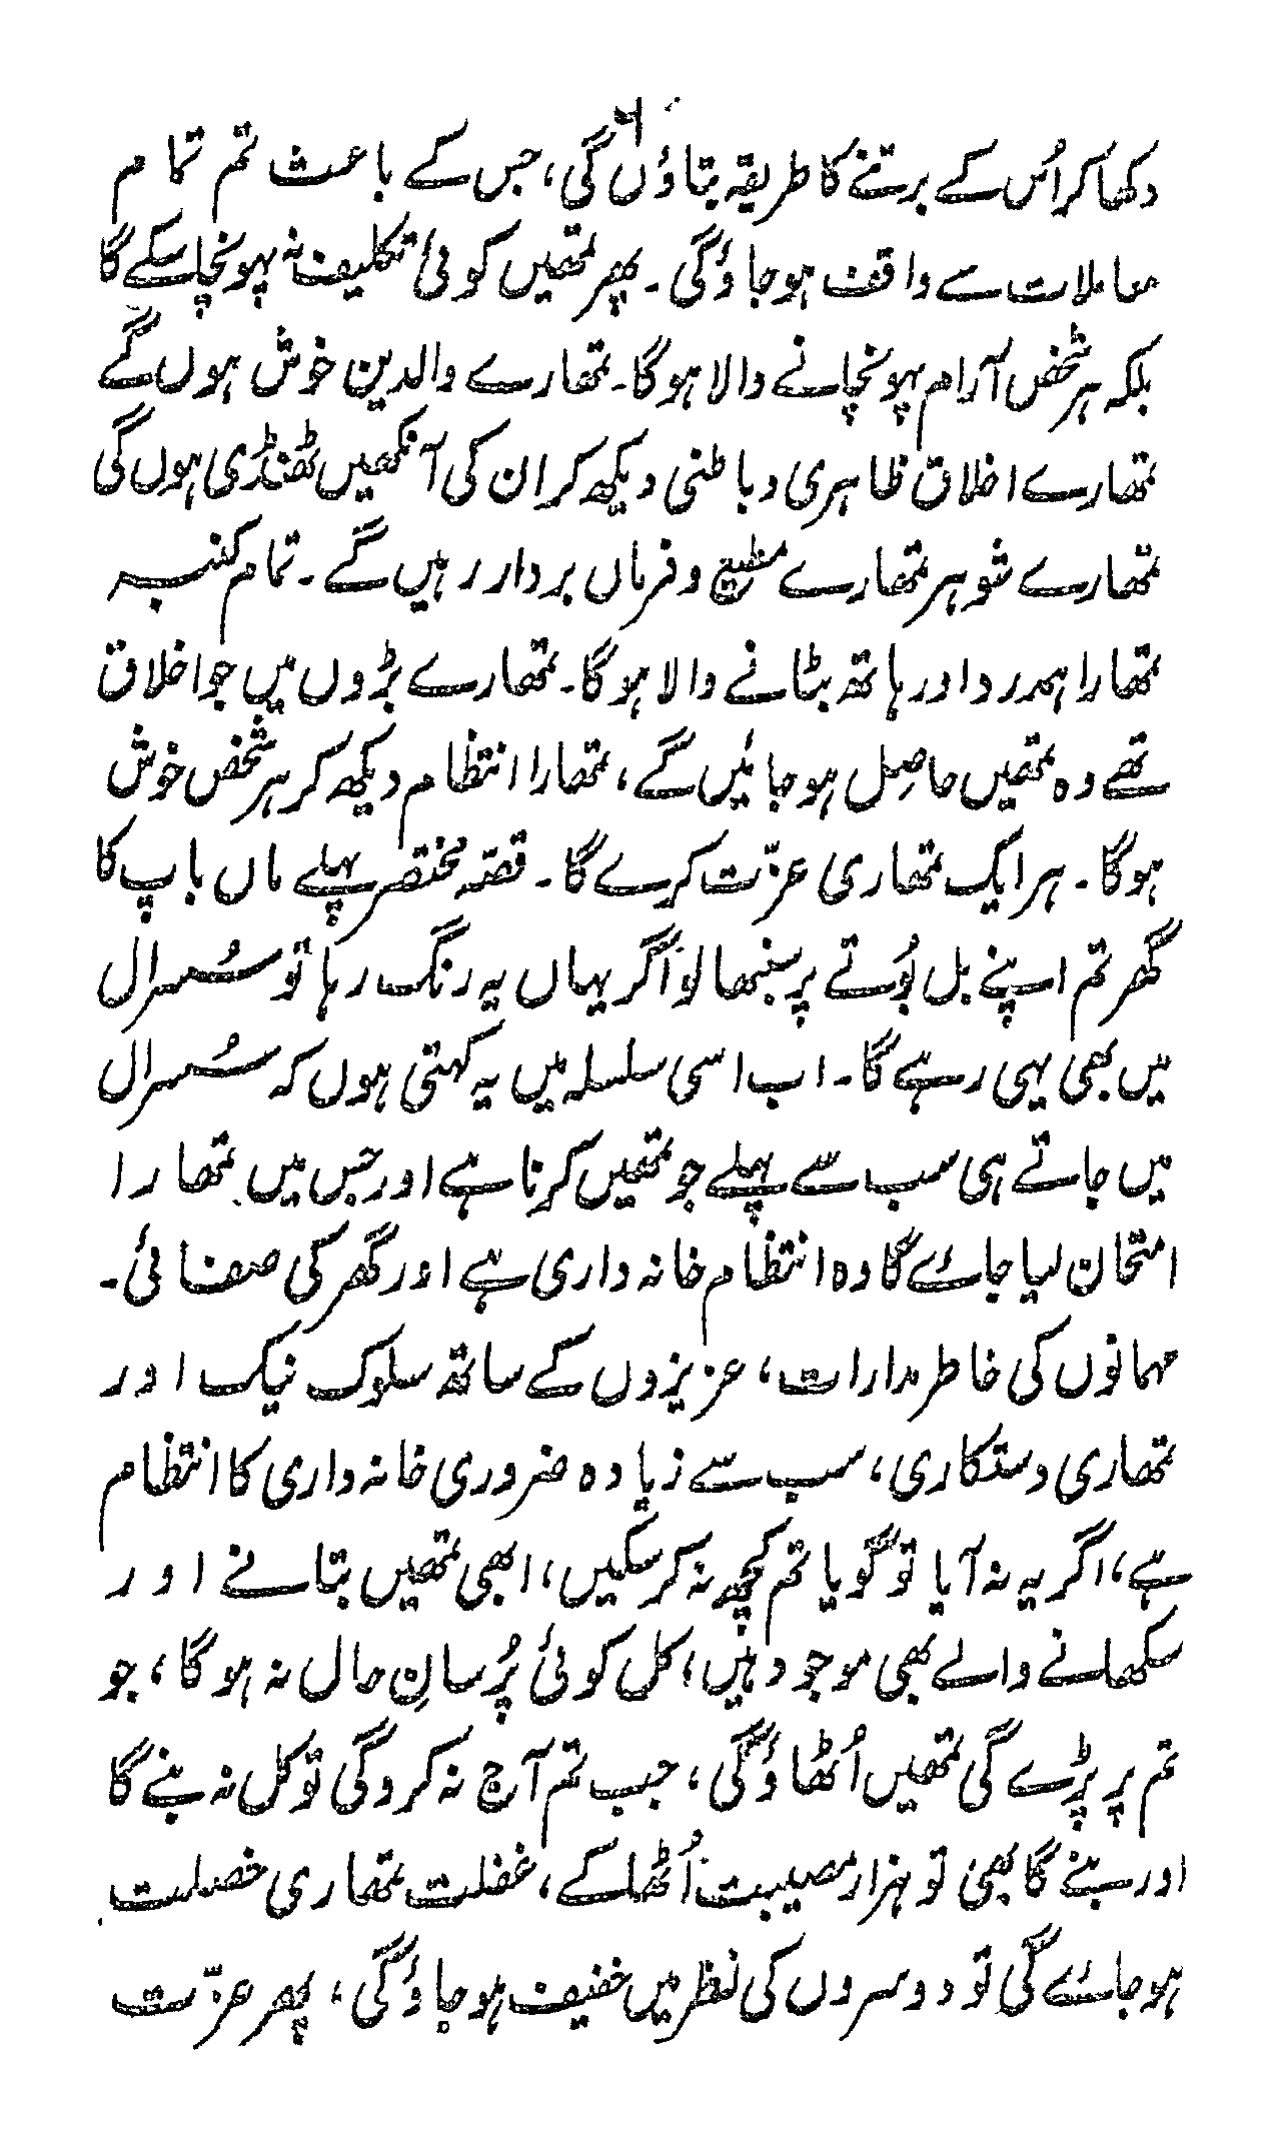 ۶
دکھا کر اُس کے برتنے کا طریقہ بتاؤں گی، جس کے باعث تم تمام
معاملات سے واقف ہو جاؤگی۔ پھر تمھیں کوئی تکلیف نہ پہونچا سکے گا
بلکہ ہر شخص آرام پہونچانے والا ہوگا۔ تمھارے والدین خوش ہوں گے
تمھارے اخلاق ظاہری و باطنی دیکھ کر ان کی آنکھیں ٹھنڈی ہوں گی
تمھارے شوہر تمھارے مطیع و فرماں بردار رہیں گے۔ تمام کنبہ
تمھارا ہمدرد اور ہاتھ بٹانے والا ہوگا۔ تمھارے بڑوں میں جو اخلاق
تھے وہ تمھیں حاصِل ہو جائیں گے، تمھارا انتظام دیکھ کر ہر شخص خوش
ہوگا۔ ہر ایک تمھاری عزّت کرے گا۔ قصّہ مختصر پہلے ماں باپ کا
گھر تم اپنے بل بُوتے پر سنبھالو اگر یہاں یہ رنگ رہا تو سُسرال
میں بھی یہی رہے گا۔ اب اسی سلسلہ میں یہ کہتی ہوں کہ سُسرال
میں جاتے ہی سب سے پہلے جو تمھیں کرنا ہے اور جس میں تمھارا
امتحان لیا جائے گا وہ انتظام خانہ داری ہے اور گھر کی صفائی۔
مہمانوں کی خاطر مدارات، عزیزوں کے ساتھ سلوک نیک اور
تمھاری دستکاری، سب سے زیادہ ضروری خانہ داری کا انتظام
ہے، اگر یہ نہ آیا تو گویا تم کچھ نہ کر سکیں، ابھی تمھیں بتانے اور
سکھانے والے بھی موجود ہیں، کل کوئی پُرسانِ حال نہ ہوگا، جو
تم پر پڑے گی تمھیں اُٹھاؤگی، جب تم آج نہ کروگی تو کل نہ بنے گا
اور بنے گا بھی تو ہزار مصیبت اُٹھا کے، غفلت تمھاری خصلت
ہو جائے گی تو دوسروں کی نظر میں خفیف ہو جاؤگی، پھر عزّت